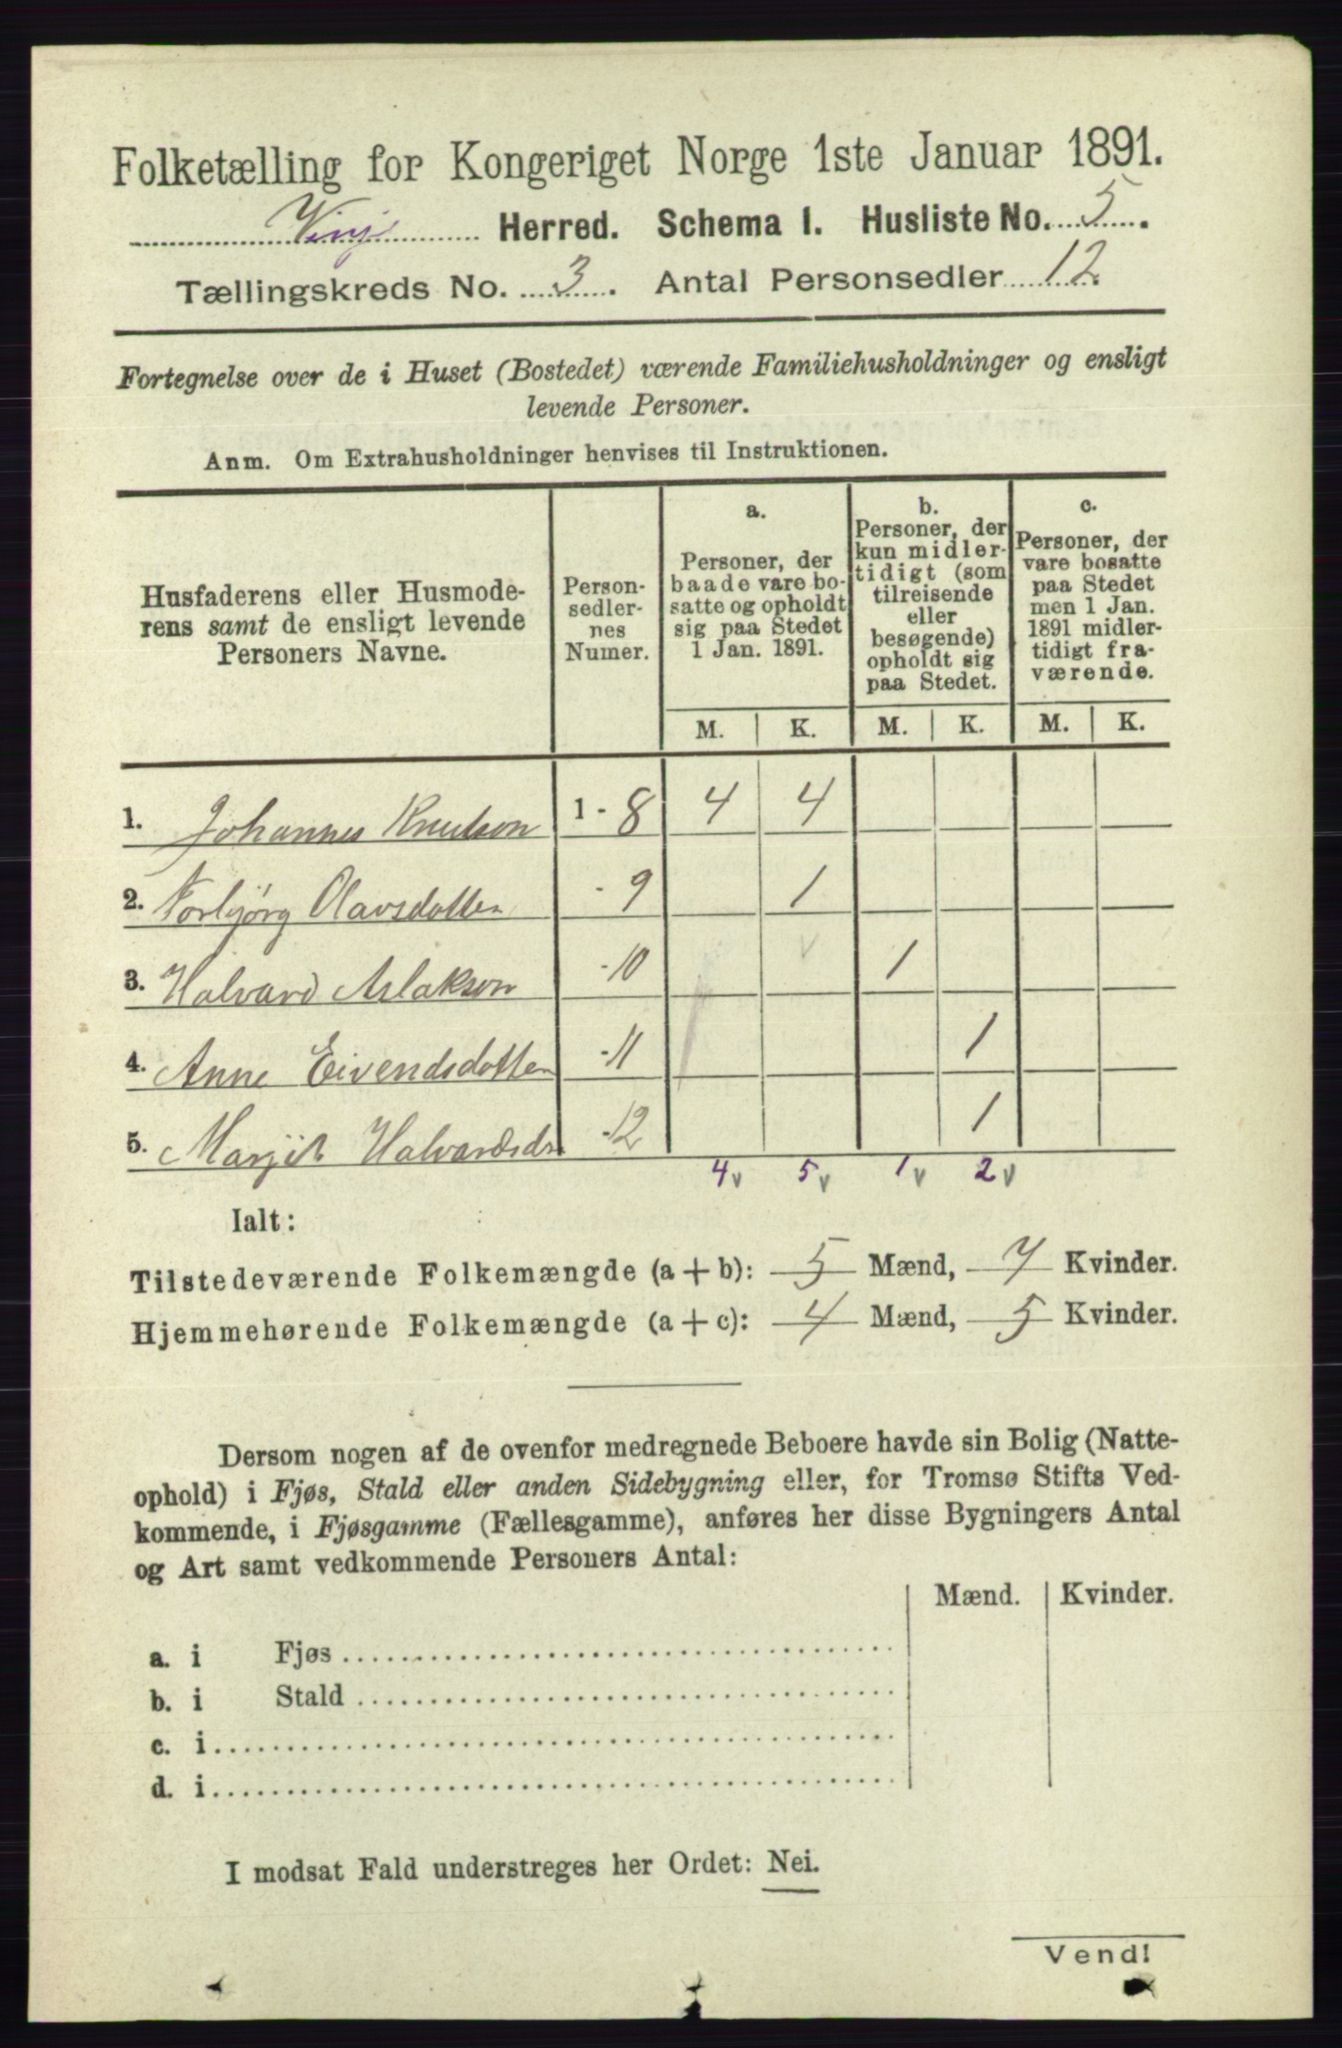 Folketælling for Kongeriget Norge 1ste Januar 1891.
Vinje Herred. Schema I. Husliste No. 5.
Tællingskreds No. 3. Antal Personsedler 12.
Fortegnelse over de i Huset (Bostedet) værende Familiehusholdninger og ensligt
levende Personer.
Anm. Om Extrahusholdninger henvises til Instruktionen.
Husfaderens eller Husmode-
rens samt de ensligt levende
Personers Navne.
Person-
sedler-
nes
Numer.
a.
Personer, der
baade vare bo-
satte og opholdt
sig paa Stedet
1 Jan. 1891.
b.
Personer, der
kun midler-
tidigt (som
tilreisende
eller
besøgende)
opholdt sig
paa Stedet.
c.
Personer, der
vare bosatte
paa Stedet
men 1 Jan.
1891 midler-
tidigt fra-
værende.
M. K. M. K. M. K.
1. Johannes Knutson 1-8 4 4
2. Torbjørg Olavsdotter -9 1
3. Halvard Aslakson -10 1
4. Anne Eivendsdotter -11 1
5. Marjit Halvardsdr -12 1
4v 5v 1v 2v
Ialt:
Tilstedeværende Folkemængde (a + b): 5 Mænd, 7 Kvinder.
Hjemmehørende Folkemængde (a + c): 4 Mænd, 5 Kvinder.
Dersom nogen af de ovenfor medregnede Beboere havde sin Bolig (Natte-
ophold) i Fjøs, Stald eller anden Sidebygning eller, for Tromsø Stifts Ved-
kommende, i Fjøsgamme (Fællesgamme), anføres her disse Bygningers Antal
og Art samt vedkommende Personers Antal:
Mænd. Kvinder.
a. i Fjøs
b. i Stald
c. i
d. i
I modsat Fald understreges her Ordet: Nei.
Vend!